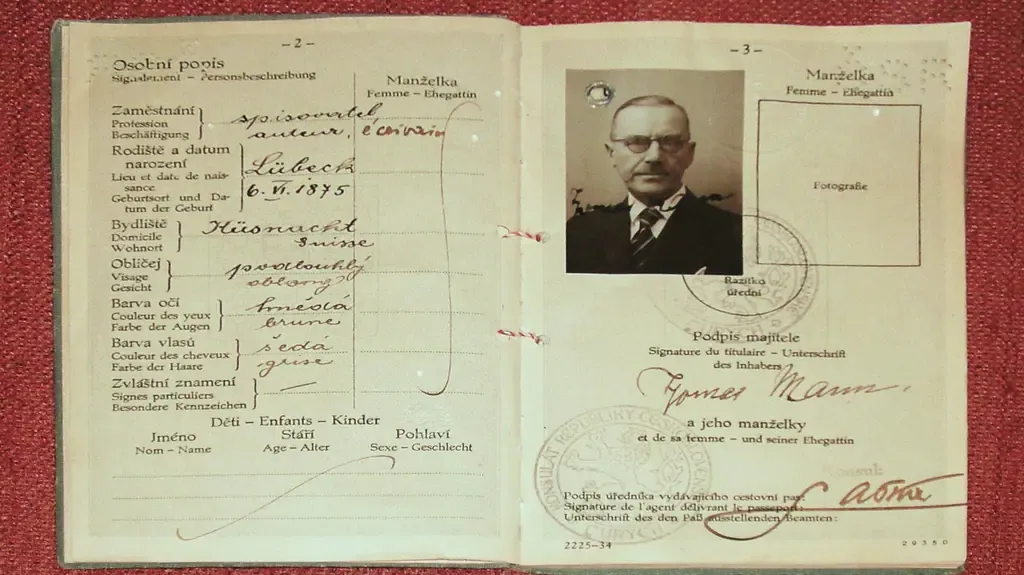 – 2 –
Osobní popis
Signalement – Personsbeschreibung
Manželka
Femme – Ehegattin
Zaměstnání
Profession
Beschäftigung
spisovatel
auteur, écrivain
Rodiště a datum
narození
Lieu et date de nais-
sance
Geburtsort und Da-
tum der Geburt
Lübeck
6. VI. 1875
Bydliště
Domicile
Wohnort
Küsnacht
Suisse
Obličej
Visage
Gesicht
podlouhlý
oblong
Barva očí
Couleur des yeux
Farbe der Augen
hnědá
brune
Barva vlasů
Couleur des cheveux
Farbe der Haare
šedá
grise
Zvláštní znamení
Signes particuliers
Besondere Kennzeichen
—
Děti – Enfants – Kinder
Jméno
Nom – Name
Stáří
Age – Alter
Pohlaví
Sexe – Geschlecht
– 3 –
Manželka
Femme – Ehegattin
Fotografie
Razítko
úřední
Podpis majitele
Signature du titulaire – Unterschrift
des Inhabers
Thomas Mann.
a jeho manželky
et de sa femme – und seiner Ehegattin
KONSULÁT REPUBLIKY ČESKOSLOVENSKÉ
CURYCH
Podpis úředníka vydávajícího cestovní pas:
Signature de l'agent délivrant le passeport:
Unterschrift des den Paß ausstellenden Beamten:
2225–34
29350